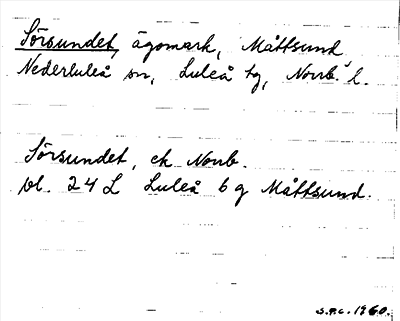 Sörsundet, ägomark, Måttsund
Nederluleå sn, Luleå tg, Norrb. l.
Sörsundet, ek Norrb.
bl. 24 L Luleå 6 g Måttsund.
S.P.C. 1960.